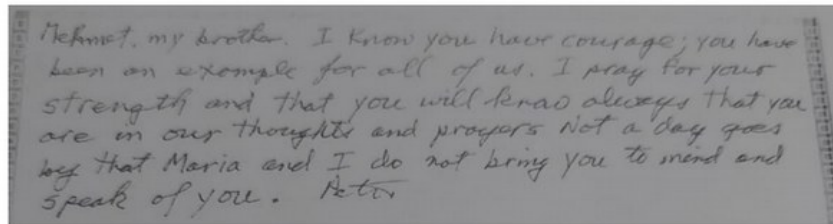 Mehmet, my brother. I know you have courage; you have
been an example for all of us. I pray for your
strength and that you will know always that you
are in our thoughts and prayers Not a day goes
by that Maria and I do not bring you to mind and
speak of you. Peter